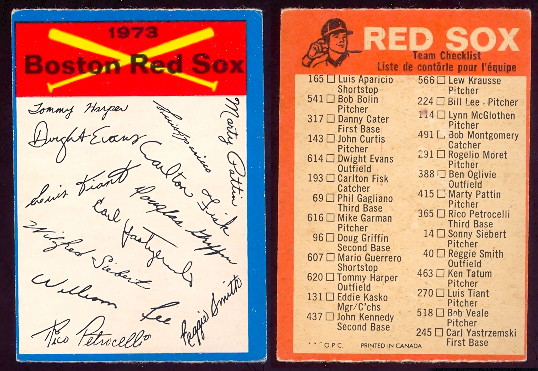 1973
Boston Red Sox
Tommy Harper
Dwight Evans
Luis Aparicio
Marty Pattin
Carlton Fisk
Luis Tiant
Douglas Griffin
Carl Yastrzemski
Wilfred Siebert
William Lee
Reggie Smith
Rico Petrocelli
RED SOX
Team Checklist
Liste de contôrle pour l'équipe
165 Luis Aparicio
Shortstop
541 Bob Bolin
Pitcher
317 Danny Cater
First Base
143 John Curtis
Pitcher
614 Dwight Evans
Outfield
193 Carlton Fisk
Catcher
69 Phil Gagliano
Third Base
616 Mike Garman
Pitcher
96 Doug Griffin
Second Base
607 Mario Guerrero
Shortstop
620 Tommy Harper
Outfield
131 Eddie Kasko
Mgr/C'chs
437 John Kennedy
Second Base
566 Lew Krausse
Pitcher
224 Bill Lee - Pitcher
114 Lynn McGlothen
Pitcher
491 Bob Montgomery
Catcher
291 Rogelio Moret
Pitcher
388 Ben Oglivie
Outfield
415 Marty Pattin
Pitcher
365 Rico Petrocelli
Third Base
14 Sonny Siebert
Pitcher
40 Reggie Smith
Outfield
463 Ken Tatum
Pitcher
270 Luis Tiant
Pitcher
518 Bob Veale
Pitcher
245 Carl Yastrzemski
First Base
O.P.C. PRINTED IN CANADA